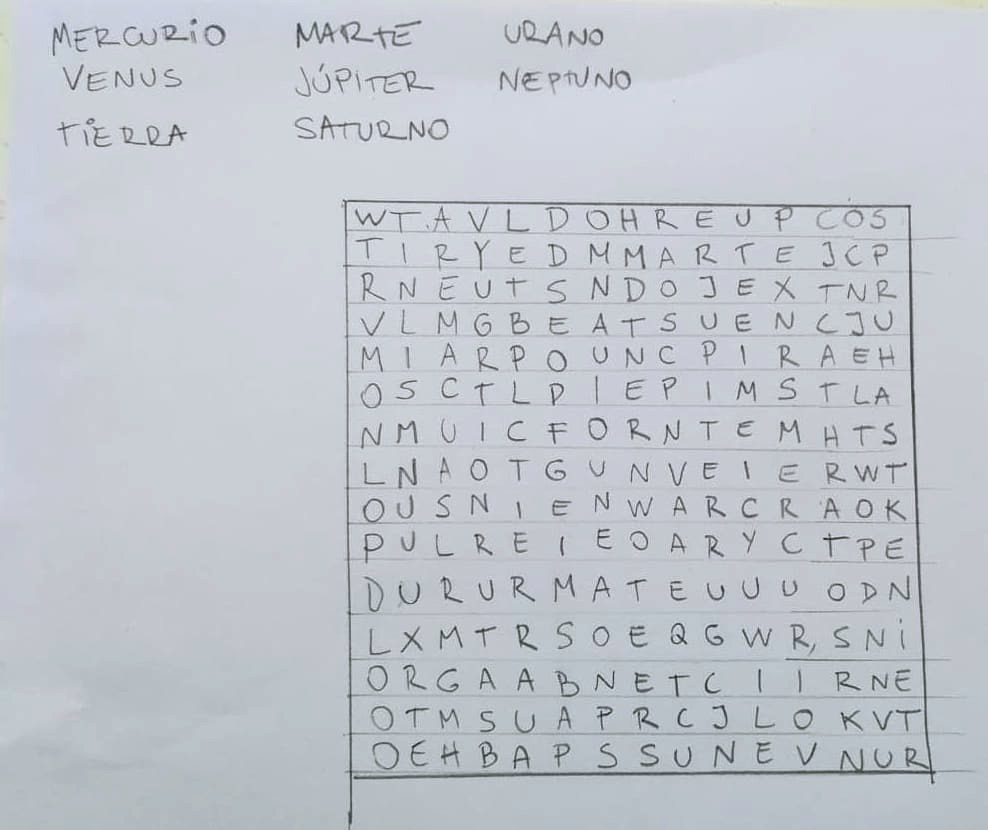 MERCURIO MARTE URANO
VENUS JÚPITER NEPTUNO
TIERRA SATURNO
W T A V L D O H R E U P C O S
T I R Y E D M M A R T E J C P
R N E U T S N D O J E X T N R
V L M G B E A T S U E N C J U
M I A R P O U N C P I R A E H
O S C T L P I E P I M S T L A
N M U I C F O R N T E M H T S
L N A O T G U N V E I E R W T
O U S N I E N W A R C R A O K
P U L R E I E O A R Y C T P E
D U R U R M A T E U U U O D N
L X M T R S O E Q G W R S N I
O R G A A B N E T C I I R N E
O T M S U A P R C J L O K V T
O E H B A P S S U N E V N U R